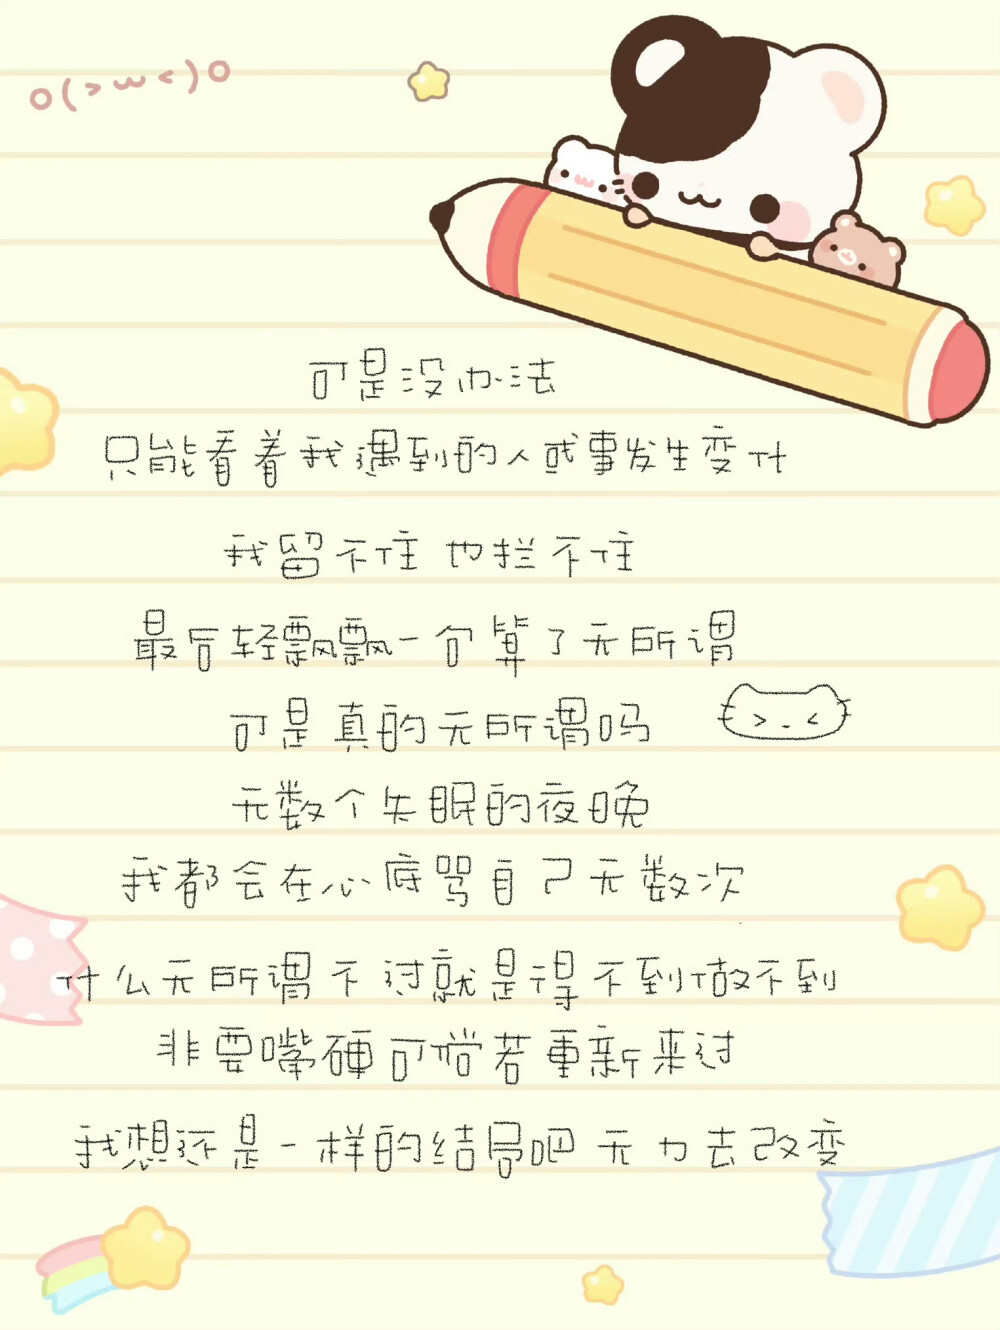 o(>w<)o
可是没办法
只能看着我遇到的人或事发生变什
我留不住 也拦不住
最后轻飘飘一个算了无所谓
可是真的无所谓吗
无数个失眠的夜晚
我都会在心底骂自己无数次
什么无所谓 不过就是得不到做不到
非要嘴硬 可倘若重新来过
我想还是一样的结局吧 无力去改变